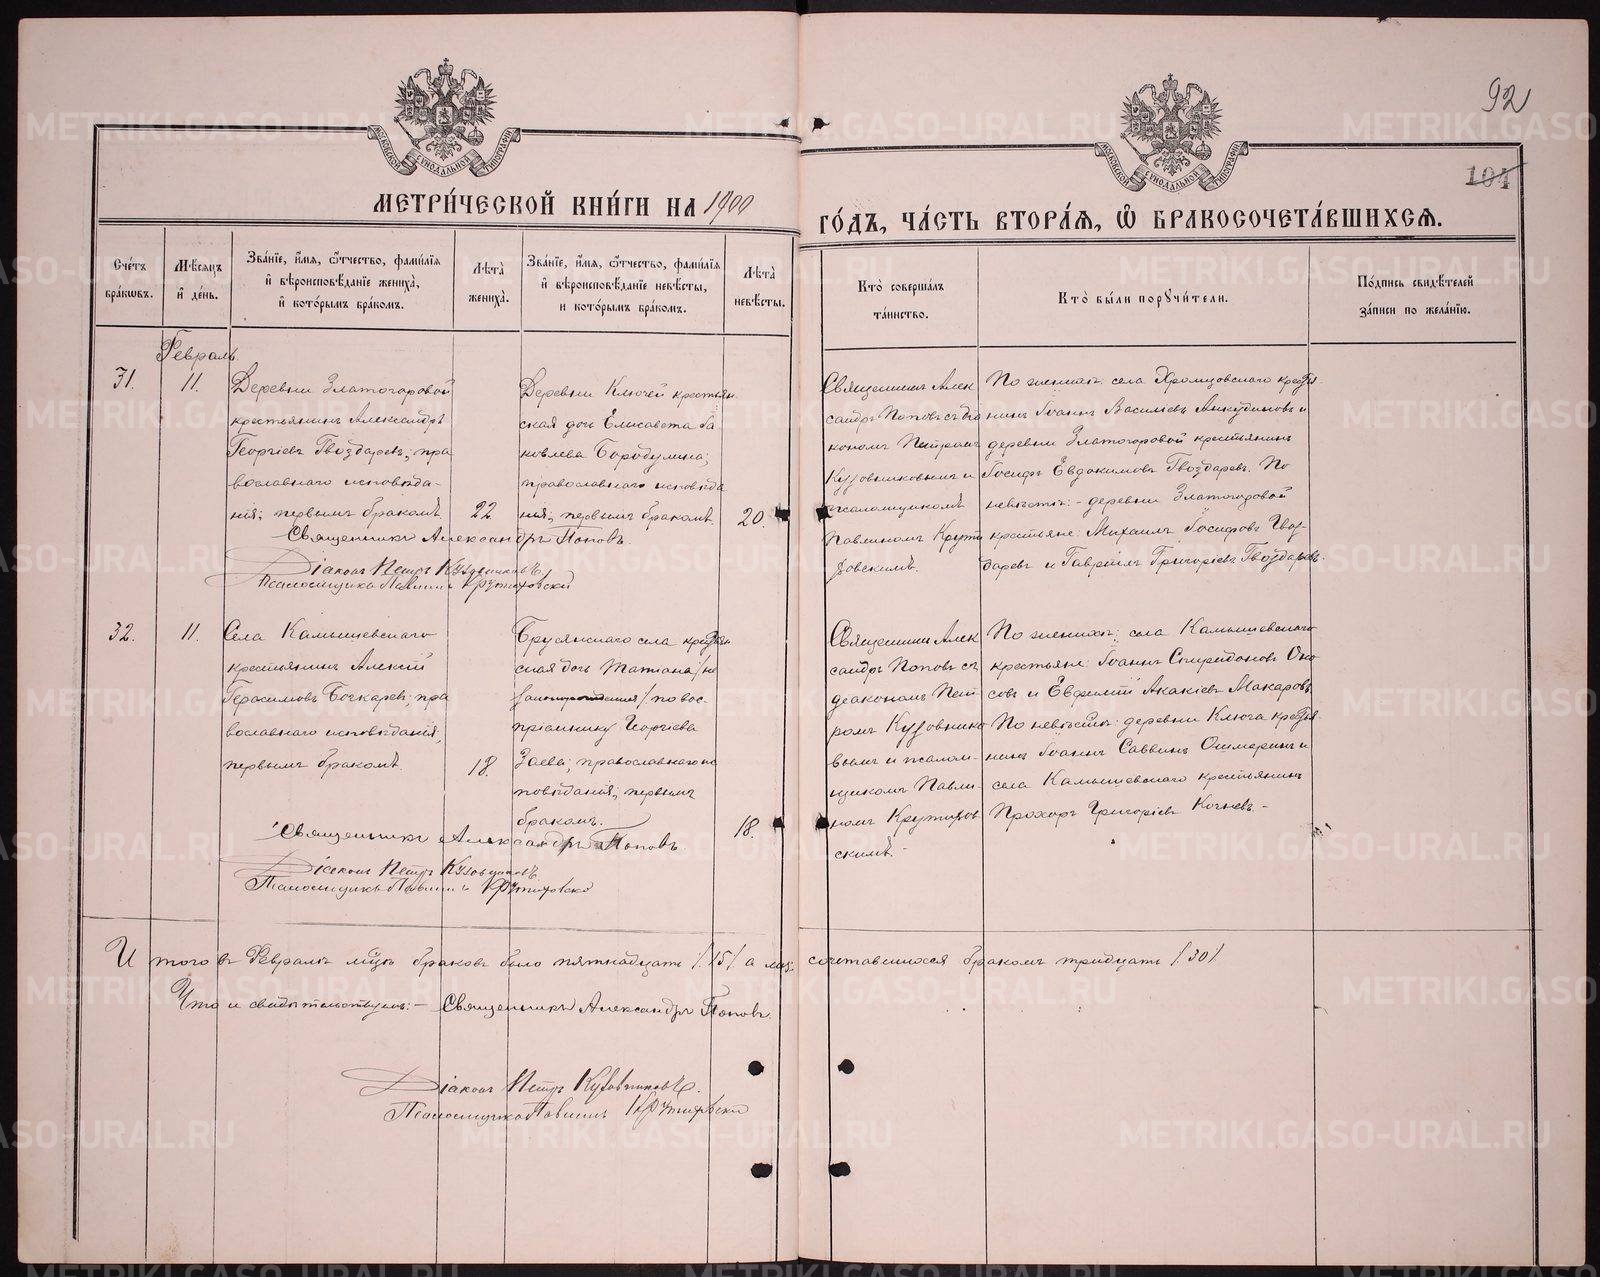 92
104
МОСКОВСКОЙ СѴНОДАЛЬНОЙ ТИПОГРАФІИ
МОСКОВСКОЙ СѴНОДАЛЬНОЙ ТИПОГРАФІИ
МЕТРИ́ЧЕСКОЙ КНИ́ГИ НА 1900
ГО́ДЪ, ЧА́СТЬ ВТОРА́Ѧ, Ѽ БРАКОСОЧЕТА́ВШИХСѦ.
Сче́тъ бра́кѡвъ.
Мѣ́сѧцъ и҆ де́нь.
Зва́нїе, и҆́мѧ, ѻ҆́тчество, фами́лїѧ и҆ вѣроисповѣ́данїе жениха̀, и҆ кото́рымъ бра́комъ.
Лѣ́та жениха̀.
Зва́нїе, и҆́мѧ, ѻ҆́тчество, фами́лїѧ и҆ вѣроисповѣ́данїе невѣ́сты, и҆ кото́рымъ бра́комъ.
Лѣ́та невѣ́сты.
Кто̀ соверша́лъ та́инство.
Кто̀ бы́ли порꙋчи́тели.
По́дпись свидѣ́телей за́писи по жела́нїю.
Февраль
31.
11.
Деревни Златогоровой
крестьянинъ Александръ
Георгіевъ Гвоздаревъ; пра
вославнаго исповѣда-
нія; первымъ бракомъ.
22
Деревни Ключей крестьян
ская дочь Елисавета Іа
ковлева Бородулина;
православнаго исповѣда
нія; первымъ бракомъ.
20.
Священникъ Алек
сандръ Поповъ съ діа
кономъ Петромъ
Кузовниковымъ и
псаломщикомъ
Павлиномъ Крути
ховскимъ.
По женихѣ: села Хромцовскаго кресть-
нинъ Іоаннъ Василіевъ Анкудиновъ и
деревни Златогоровой крестьянинъ
Іосифъ Евдокимовъ Гвоздаревъ. По
невѣстѣ: - деревни Златогоровой
крестьяне: Михаилъ Іосифовъ Гвоз-
даревъ и Гавріилъ Григоріевъ Гвоздаревъ.
Священникъ Александръ Поповъ.
Діаконъ Петръ Кузовниковъ
Псаломщикъ Павлинъ Крутиховскій
32.
11.
Села Камышевскаго
крестьянинъ Алексій
Герасимовъ Бочкаревъ; пра
вославнаго исповѣданія,
первымъ бракомъ.
18.
Брусянскаго села крестьян
ская дочь Татіана /не
законнорожденная/ по вос-
пріемнику Георгіева
Заева; православнаго ис
повѣданія; первымъ
бракомъ.
18.
Священникъ Алек
сандръ Поповъ съ
діакономъ Пет
ромъ Кузовнико
вымъ и псалом-
щикомъ Павли-
номъ Крутихов
скимъ.-
По женихѣ: села Камышевскаго
крестьяне: Іоаннъ Спиридоновъ Око
совъ и Евфимій Акакіевъ Макаровъ
По невѣстѣ: деревни Ключа крестья-
нинъ Іоаннъ Саввинъ Ошмаринъ и
села Камышевскаго крестьянинъ
Прохоръ Григоріевъ Кочневъ.-
Священникъ Александръ Поповъ
Діаконъ Петръ Кузовниковъ
Псаломщикъ Павлинъ Крутиховскій
Итого въ Февралѣ мѣсцѣ браковъ было пятнадцать /.15/. а лицъ сочетавшихся бракомъ тридцать /.30/.
Что и свидѣтельствуемъ:- Священникъ Александръ Поповъ.
Діаконъ Петръ Кузовниковъ.
Псаломщикъ Павлинъ Крутиховскій
METRIKI.GASO-URAL.RU